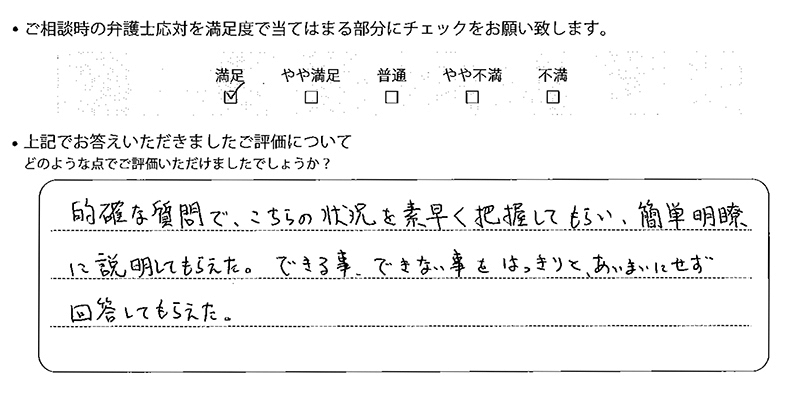 • ご相談時の弁護士応対を満足度で当てはまる部分にチェックをお願い致します。
満足 やや満足 普通 やや不満 不満
☑ □ □ □ □
• 上記でお答えいただきましたご評価について
どのような点でご評価いただけましたでしょうか？
的確な質問で、こちらの状況を素早く把握してもらい、簡単明瞭
に説明してもらえた。できる事、できない事をはっきりと、あいまいにせず
回答してもらえた。